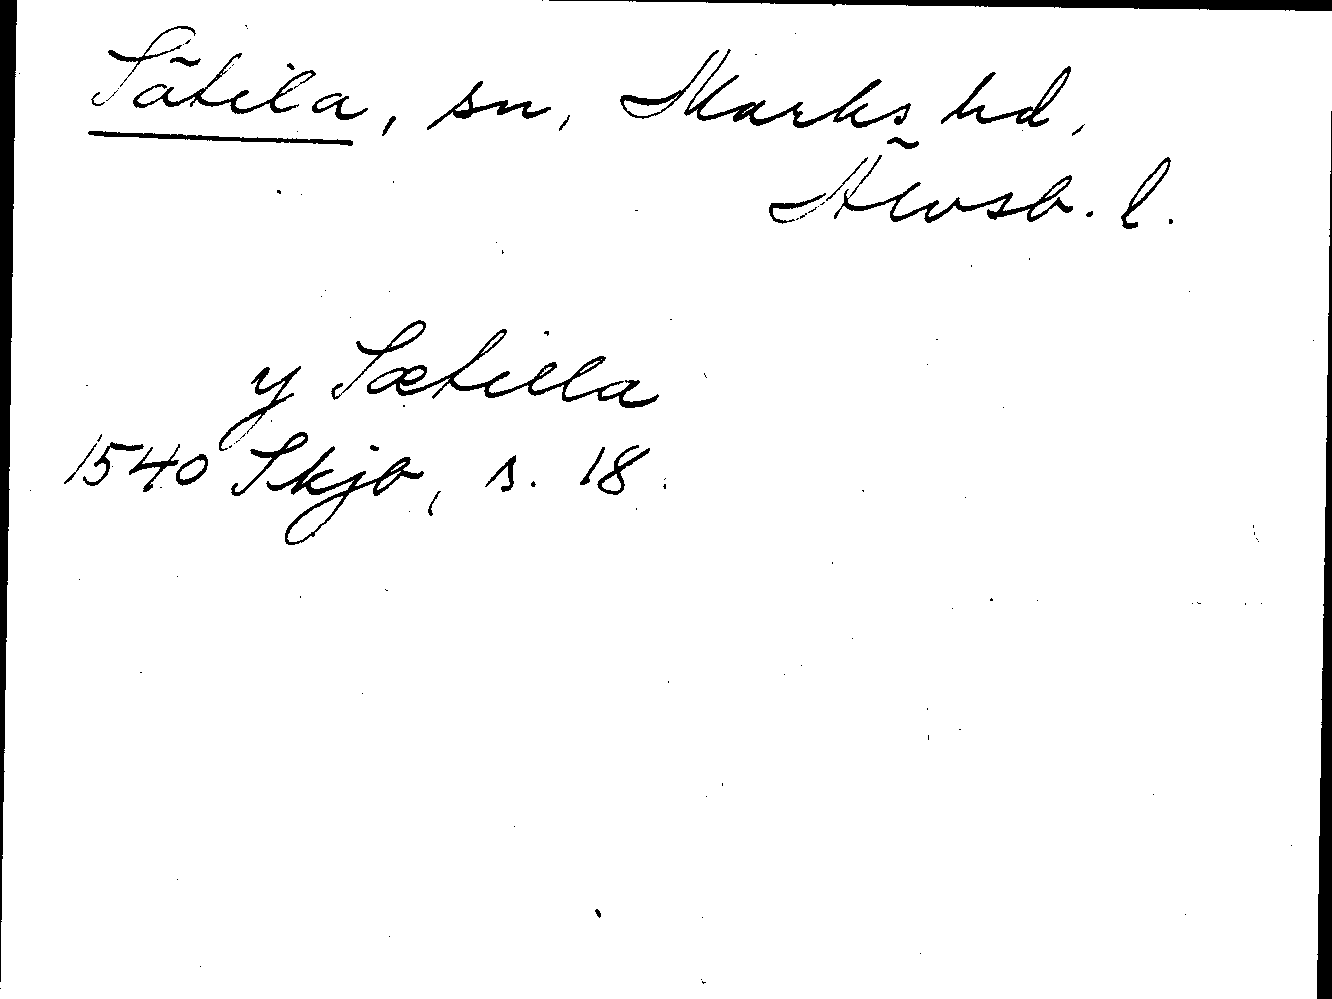 Sätila, sn, Marks hd,
Älvsb. l.
y Sætilla
1540 Skjb, s. 18.